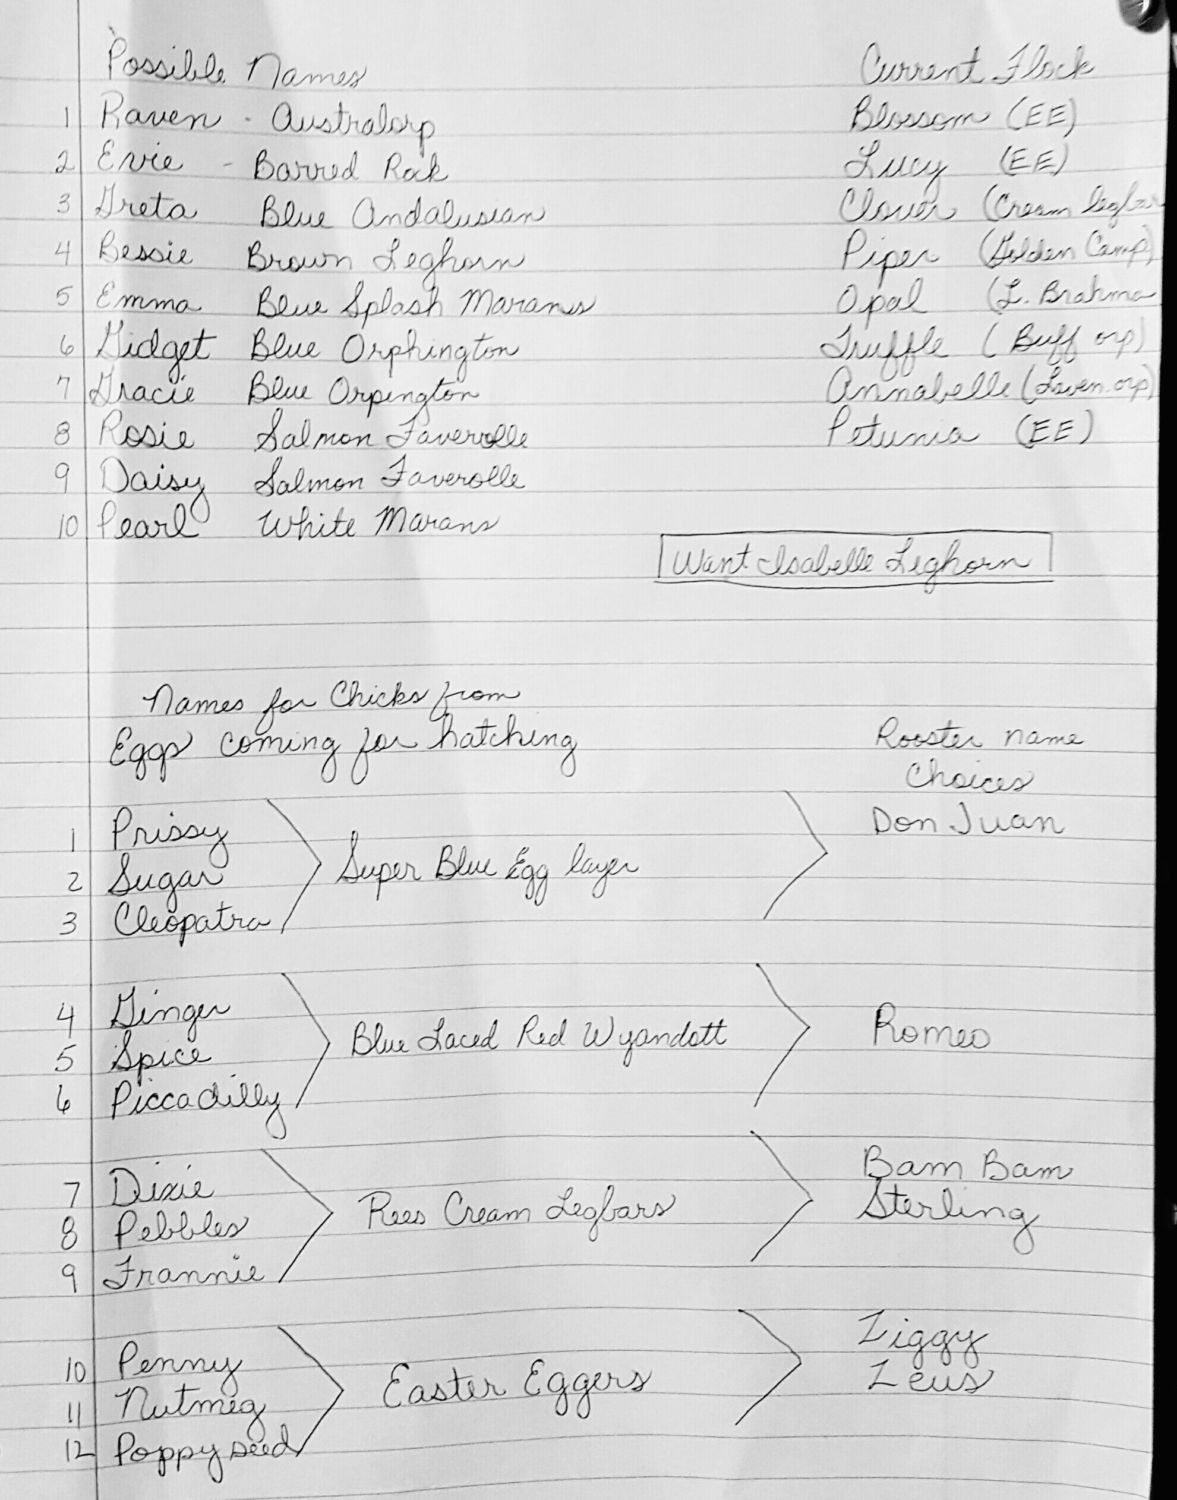 Possible Names
1 Raven - Australorp
2 Evie - Barred Rock
3 Greta Blue Andalusian
4 Bessie Brown Leghorn
5 Emma Blue Splash Marans
6 Gidget Blue Orphington
7 Gracie Blue Orpington
8 Rosie Salmon Faverolle
9 Daisy Salmon Faverolle
10 Pearl White Marans
Current Flock
Blossom (EE)
Lucy (EE)
Clover (Cream legbar
Piper (Golden Camp)
Opal (L. Brahma
Truffle (Buff orp)
Annabelle (Laven.orp)
Petunia (EE)
Want Isabelle Leghorn
Names for Chicks from
Eggs coming for hatching
1 Prissy
2 Sugar
3 Cleopatra
Super Blue Egg layer
4 Ginger
5 Spice
6 Piccadilly
Blue Laced Red Wyandott
7 Dixie
8 Pebbles
9 Frannie
Rees Cream Legbars
10 Penny
11 Nutmeg
12 Poppyseed
Easter Eggers
Rooster name
Choices
Don Juan
Romeo
Bam Bam
Sterling
Ziggy
Zeus